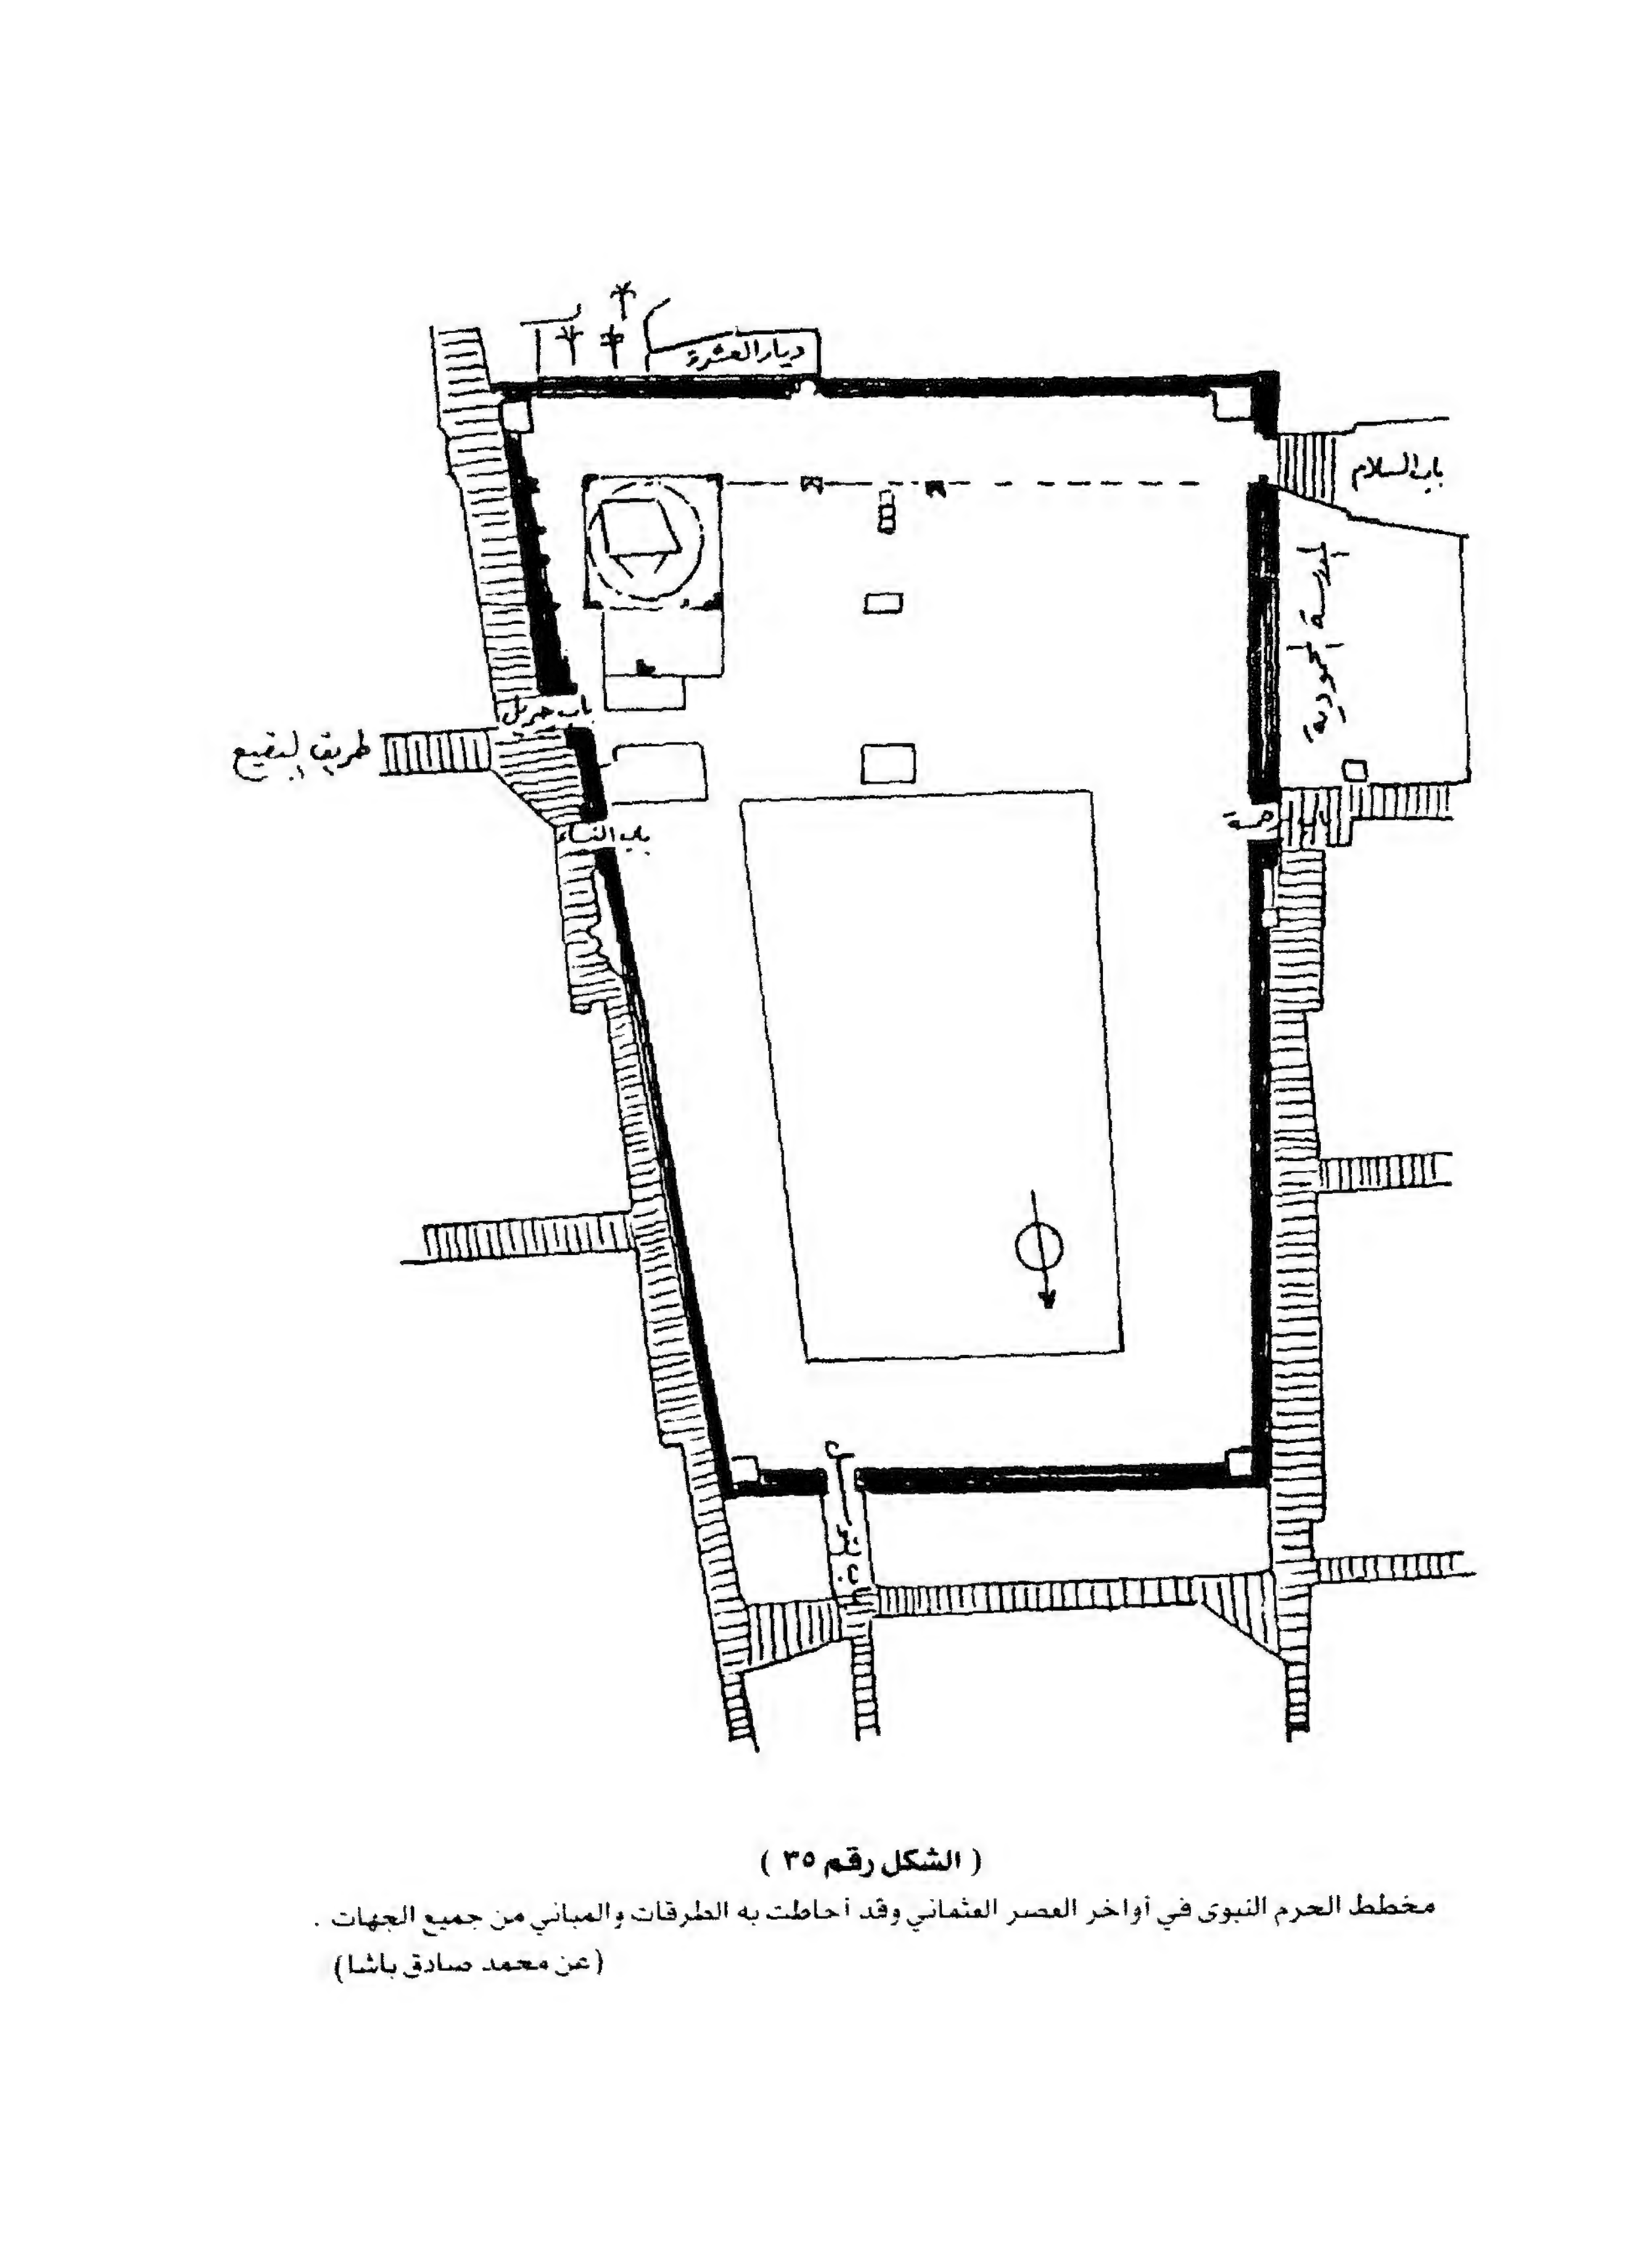 ديار العشرة
باب السلام
المدرسة المحمودية
باب جبريل
طريق البقيع
باب النساء
باب رحمة
( الشكل رقم ٣٥ )
مخطط الحرم النبوى في أواخر العصر العثماني وقد أحاطت به الطرقات والمباني من جميع الجهات .
(عن محمد صادق باشا)